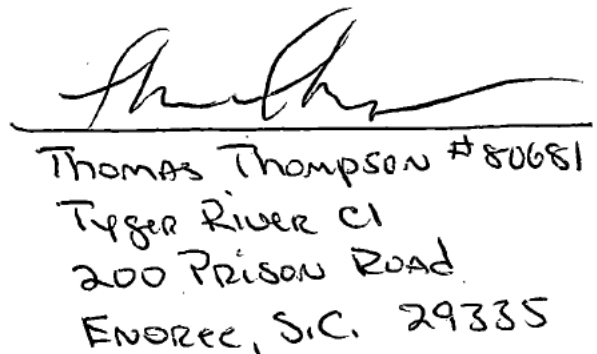 Thomas Thompson #80681
Tyger River CI
200 Prison Road
Enoree, S.C. 29335